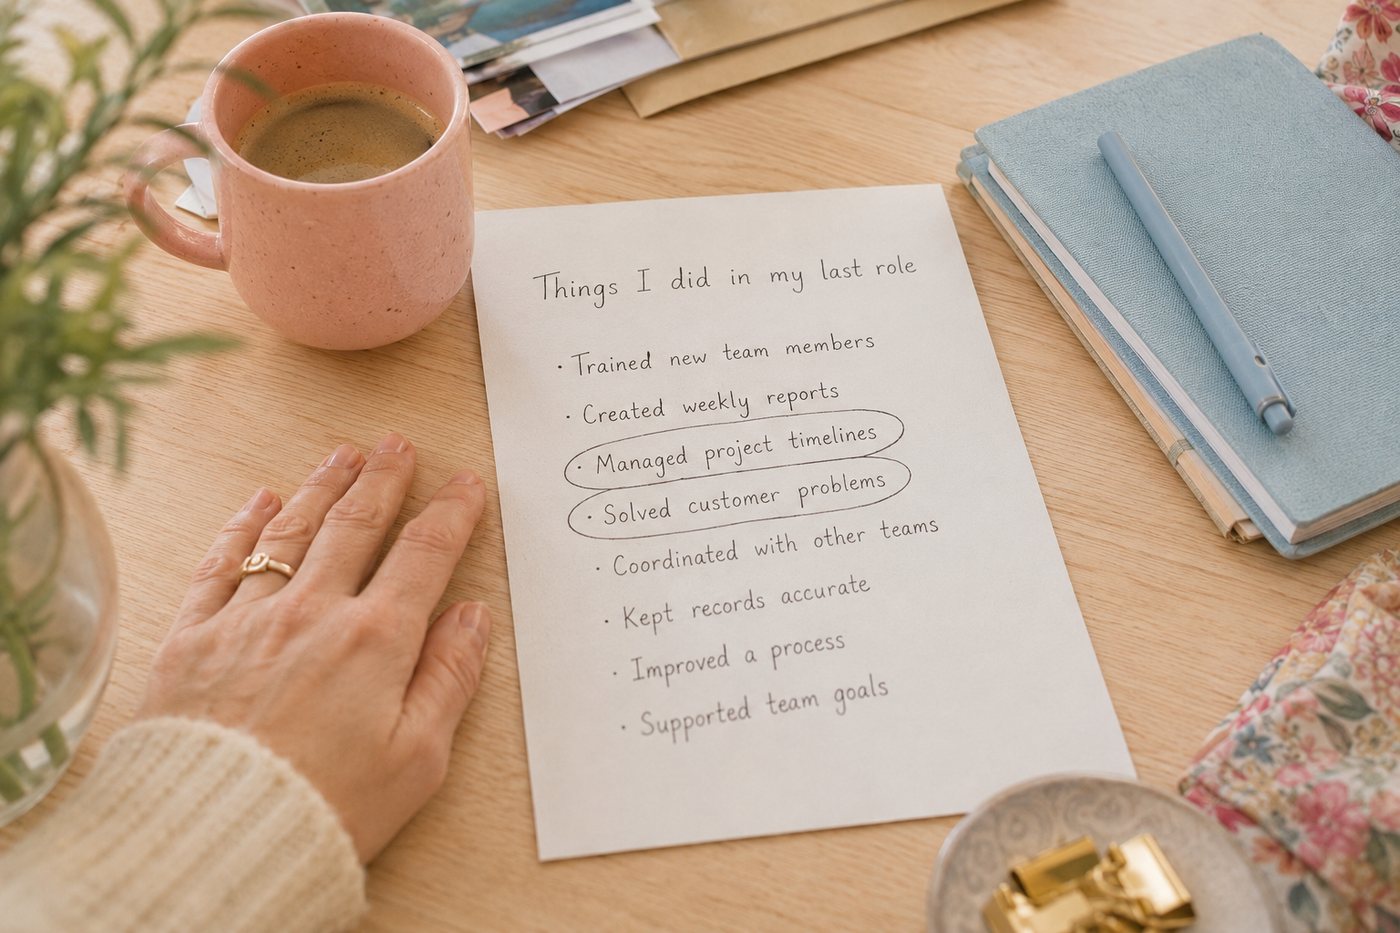 Things I did in my last role
· Trained new team members
· Created weekly reports
· Managed project timelines
· Solved customer problems
· Coordinated with other teams
· Kept records accurate
· Improved a process
· Supported team goals